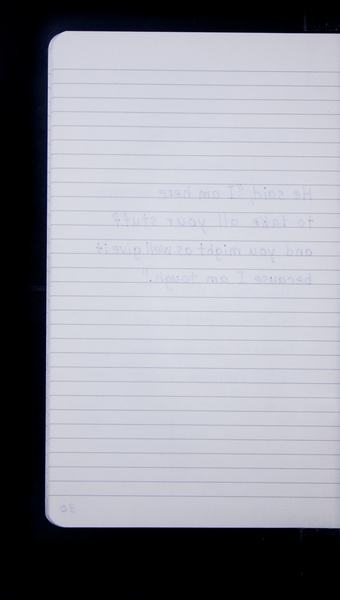 He said, "I am here
to take all your stuff
and you might as well give it
because I am tough."
30